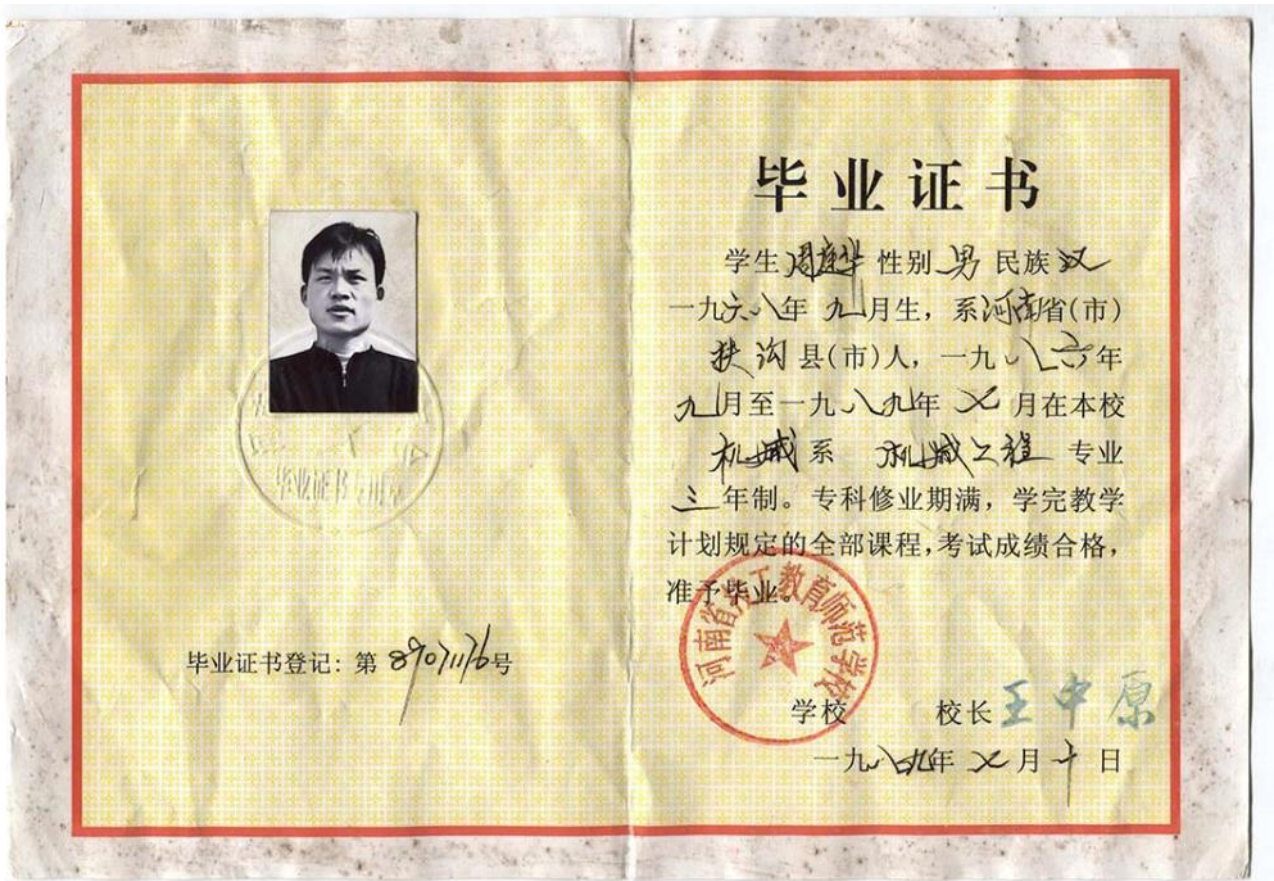 毕业证书登记: 第89071176号
毕业证书专用章
毕业证书
学生周建华 性别 男 民族 汉
一九六八年 九月生, 系河南省(市)
扶沟县(市)人, 一九八六年
九月至一九八九年 七 月在本校
机械系 机械工程 专业
三年制。专科修业期满, 学完教学
计划规定的全部课程,考试成绩合格,
准予毕业。
河南省劳工教育师范学校
学校 校长 王中原
一九八九年 七月 十 日